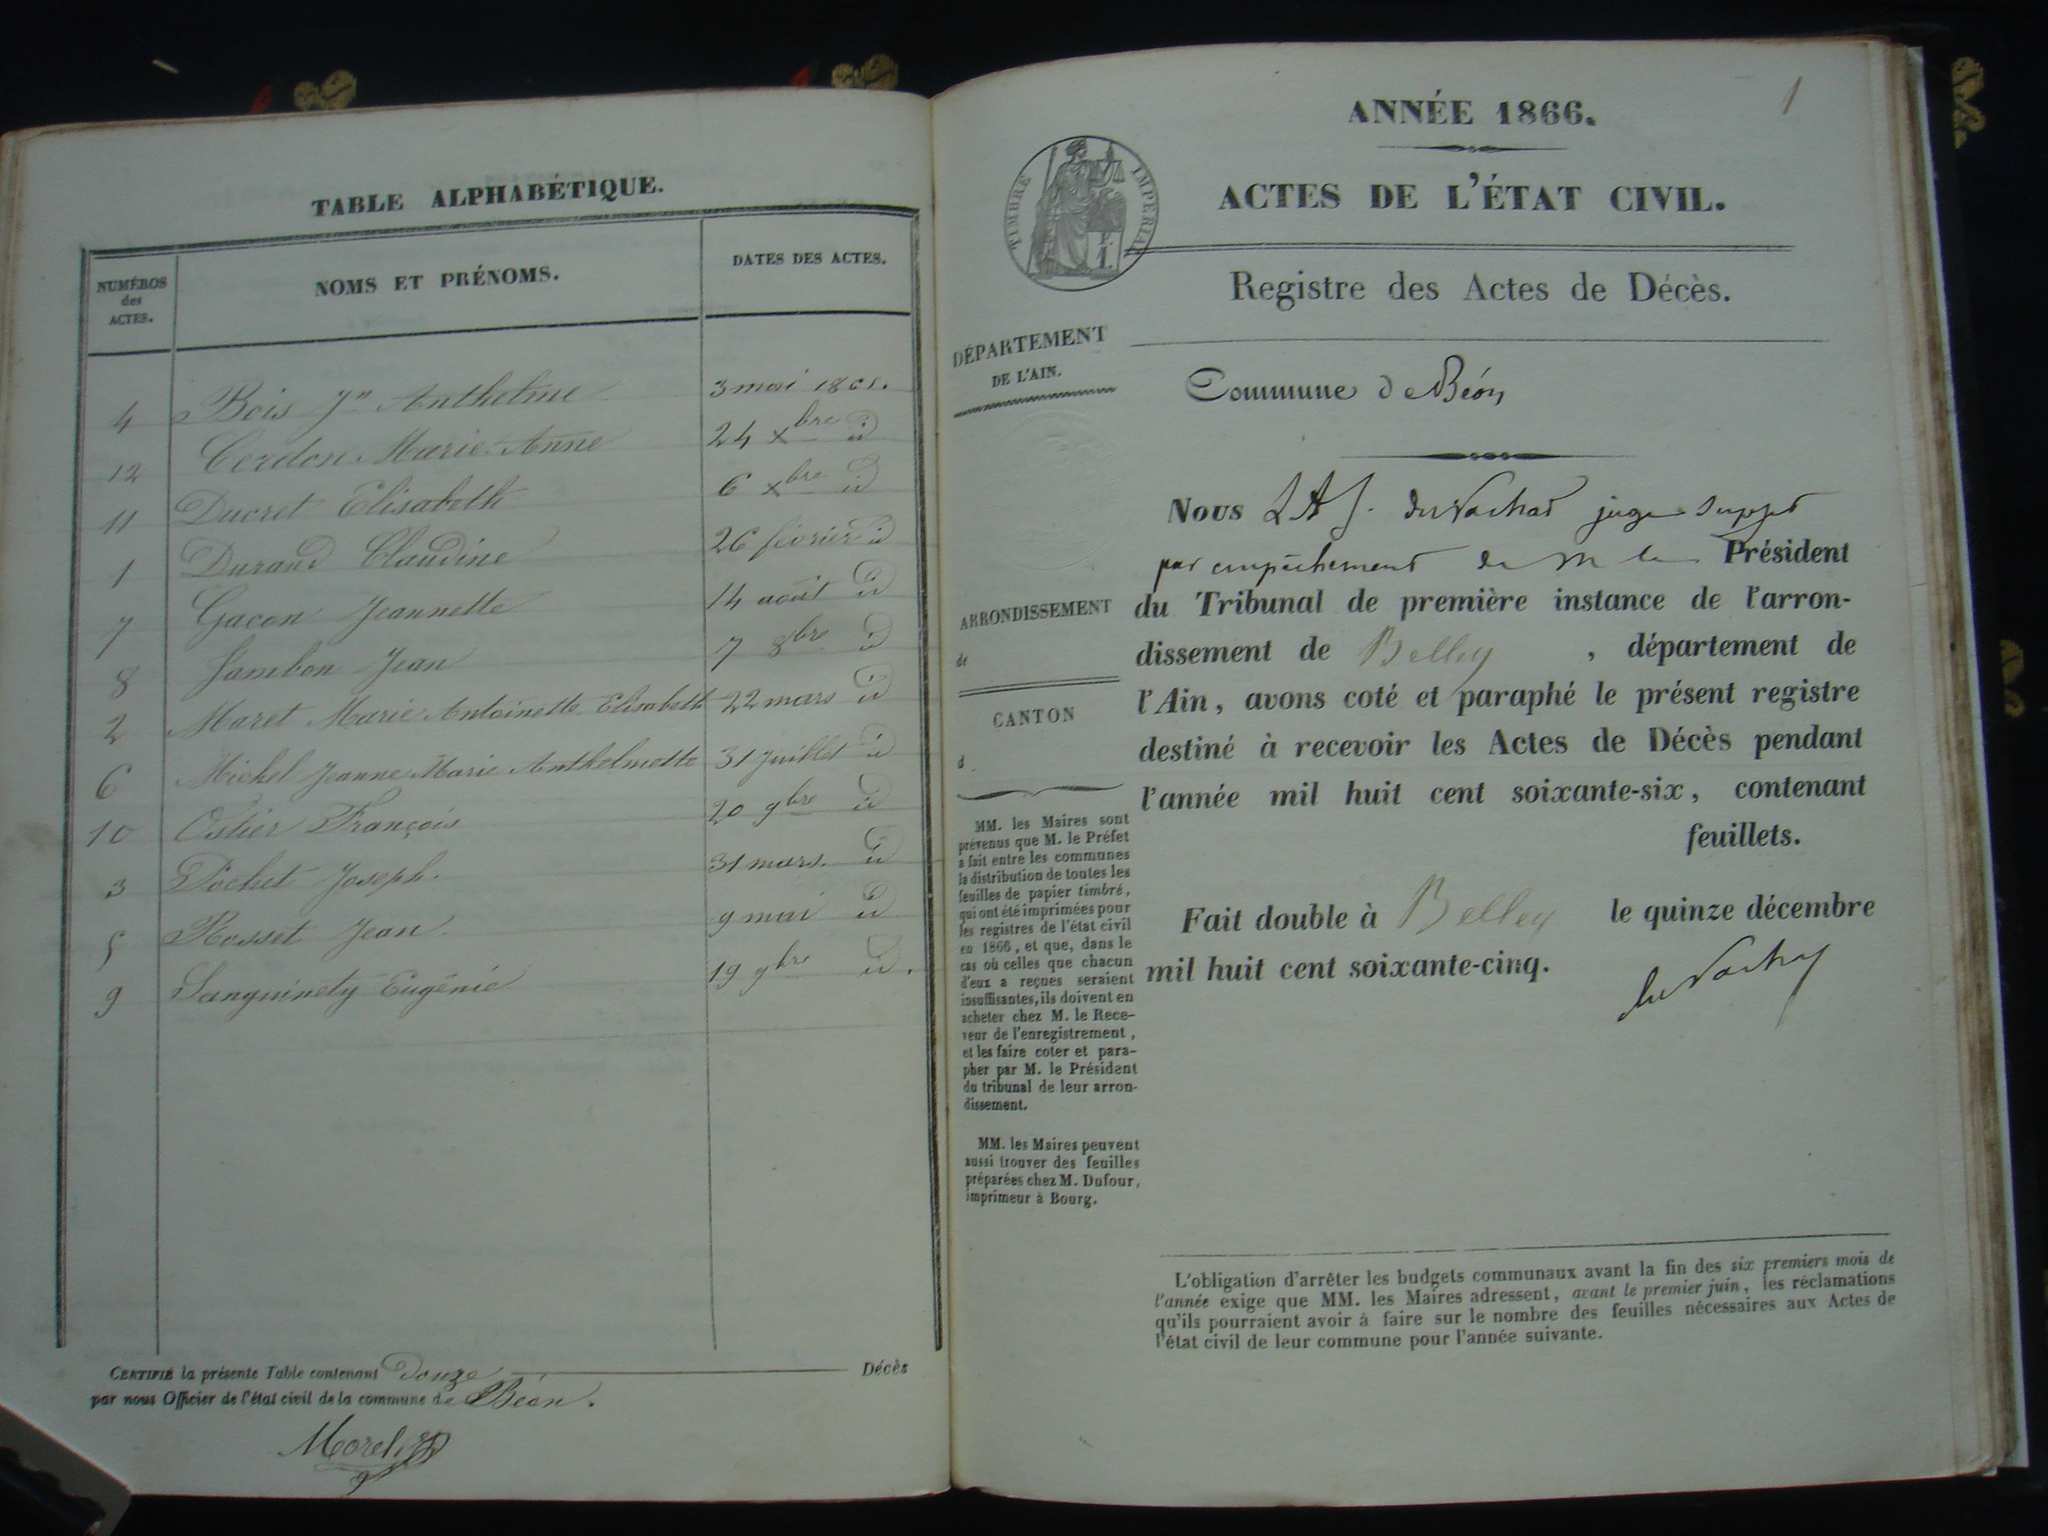 TABLE ALPHABÉTIQUE.
NUMÉROS des ACTES. NOMS ET PRÉNOMS. DATES DES ACTES.
4 Bois Jn Anthelme 3 mai 1865.
12 Cerdon Marie Anne 24 xbre id
11 Ducret Elisabeth 6 xbre id
1 Durand Claudine 26 février id
7 Gacon Jeannette 14 août id
8 Jambon Jean 7 8bre id
2 Maret Marie Antoinette Elisabeth 22 mars id
6 Michel Jeanne Marie Anthelmette 31 Juillet id
10 Ostier François 20 9bre id
3 Pochet Joseph. 31 mars. id
5 Rosset Jean. 9 mai id
9 Sanguinety Eugénie 19 9bre id.
CERTIFIÉ la présente Table contenant Douze Décès
par nous Officier de l'état civil de la commune de Béon.
Morel
1
ANNÉE 1866.
TIMBRE IMPÉRIAL
ACTES DE L'ÉTAT CIVIL.
Registre des Actes de Décès.
DÉPARTEMENT
DE L'AIN.
Commune de Béon
Nous juge suppt
par empêchement de M le Président
du Tribunal de première instance de l'arron-
dissement de Belley , département de
l'Ain, avons coté et paraphé le présent registre
destiné à recevoir les Actes de Décès pendant
l'année mil huit cent soixante-six, contenant
feuillets.
Fait double à Belley le quinze décembre
mil huit cent soixante-cinq.
ARRONDISSEMENT
de
CANTON
d
MM. les Maires sont
prévenus que M. le Préfet
a fait entre les communes
la distribution de toutes les
feuilles de papier timbré,
qui ont été imprimées pour
les registres de l'état civil
en 1866, et que, dans le
cas où celles que chacun
d'eux a reçues seraient
insuffisantes, ils doivent en
acheter chez M. le Rece-
veur de l'enregistrement,
et les faire coter et para-
pher par M. le Président
du tribunal de leur arron-
dissement.
MM. les Maires peuvent
aussi trouver des feuilles
préparées chez M. Dufour,
imprimeur à Bourg.
L'obligation d'arrêter les budgets communaux avant la fin des six premiers mois de
l'année exige que MM. les Maires adressent, avant le premier juin, les réclamations
qu'ils pourraient avoir à faire sur le nombre des feuilles nécessaires aux Actes de
l'état civil de leur commune pour l'année suivante.